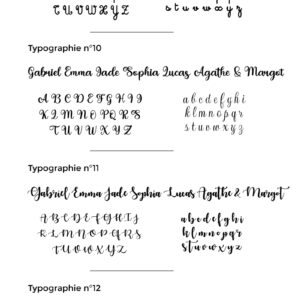 T U V W X Y Z s t u v w x y z
Typographie n°10
Gabriel Emma Jade Sophia Lucas Agathe & Margot
A B C D E F G H I J a b c d e f g h i j
K L M N O P Q R S k l m n o p q r
T U V W X Y Z s t u v w x y z
Typographie n°11
Gabriel Emma Jade Sophia Lucas Agathe & Margot
A B C D E F G H I J a b c d e f g h i j
K L M N O P Q R S k l m n o p q r
T U V W X Y Z s t u v w x y z
Typographie n°12